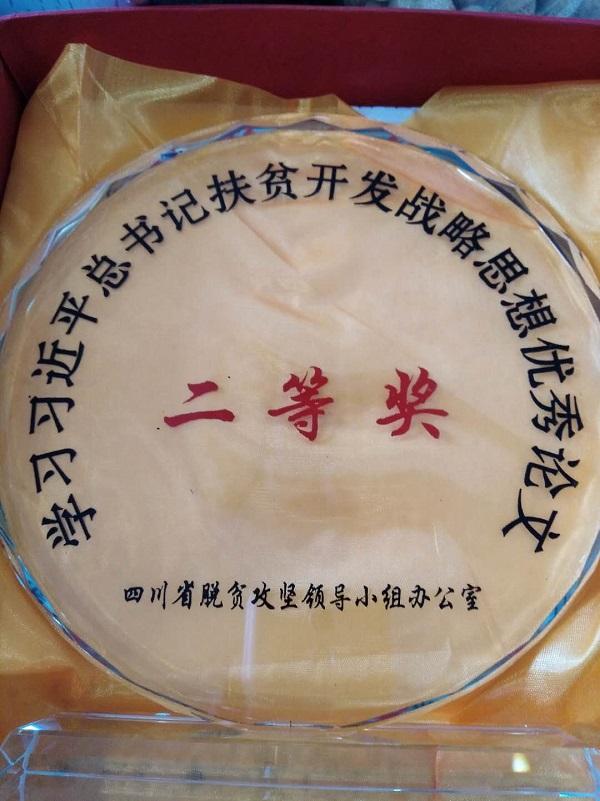 学习习近平总书记扶贫开发战略思想优秀论文
二等奖
四川省脱贫攻坚领导小组办公室